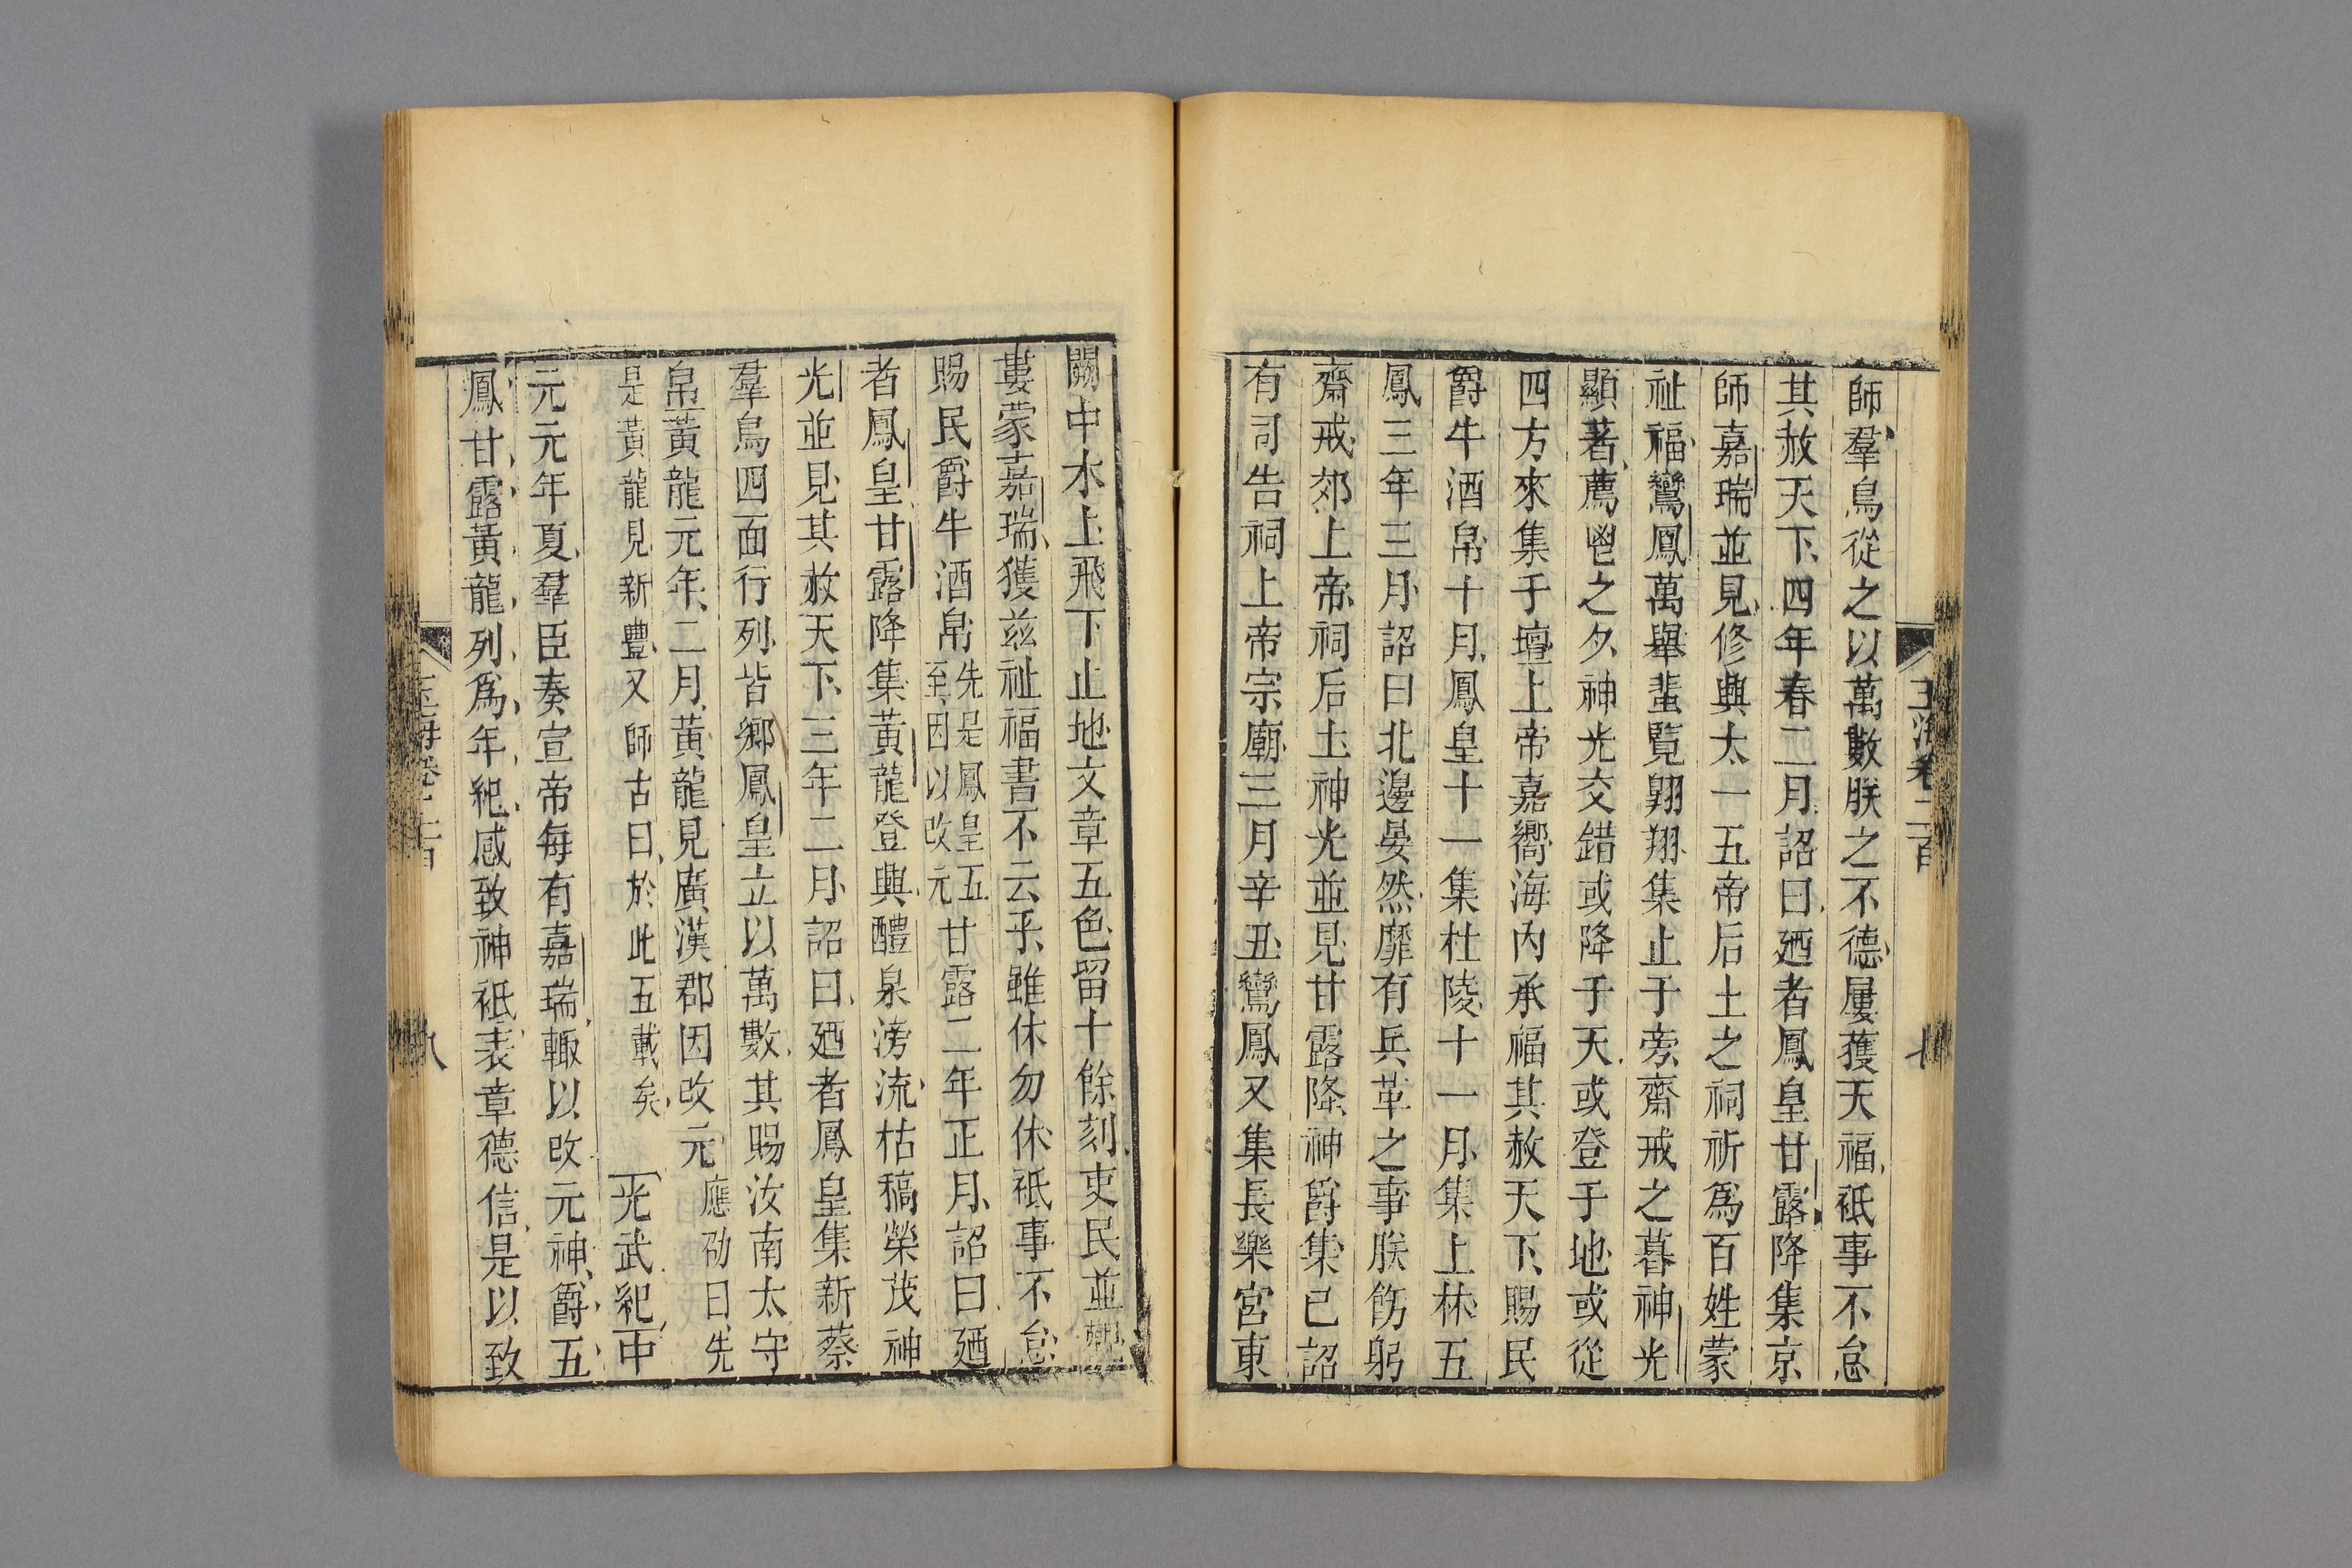 師羣鳥從之以萬數朕之不德屢獲天福祗事不怠
其赦天下四年春二月詔曰廼者鳳皇甘露降集京
師嘉瑞並見修興太一五帝后土之祠祈爲百姓蒙
祉福鸞鳳萬舉蜚覽翱翔集止于旁齋戒之暮神光
顯著薦鬯之夕神光交錯或降于天或登于地或從
四方來集于壇上帝嘉嚮海內承福其赦天下賜民
爵牛酒帛十月鳳皇十一集杜陵十一月集上林五
鳳三年三月詔曰北邊晏然靡有兵革之事朕飭躬
齋戒郊上帝祠后土神光並見甘露降神爵集已詔
有司告祠上帝宗廟三月辛丑鸞鳳又集長樂宮東
闕中木上飛下止地文章五色留十餘刻吏民並觀
婁蒙嘉瑞獲兹祉福書不云乎雖休勿休祗事不怠
賜民爵牛酒帛先是鳳皇五至因以改元甘露二年正月詔曰廼
者鳳皇甘露降集黃龍登興醴泉滂流枯槁榮茂神
光並見其赦天下三年二月詔曰廼者鳳皇集新蔡
羣鳥四面行列皆鄉鳳皇立以萬數其賜汝南太守
帛黃龍元年二月黃龍見廣漢郡因改元應劭曰先
是黃龍見新豐又師古曰於此五載矣 光武紀中
元元年夏羣臣奏宣帝每有嘉瑞輒以改元神爵五
鳳甘露黃龍列爲年紀感致神祗表章德信是以致
玉海卷二百
七
玉海卷二百
八